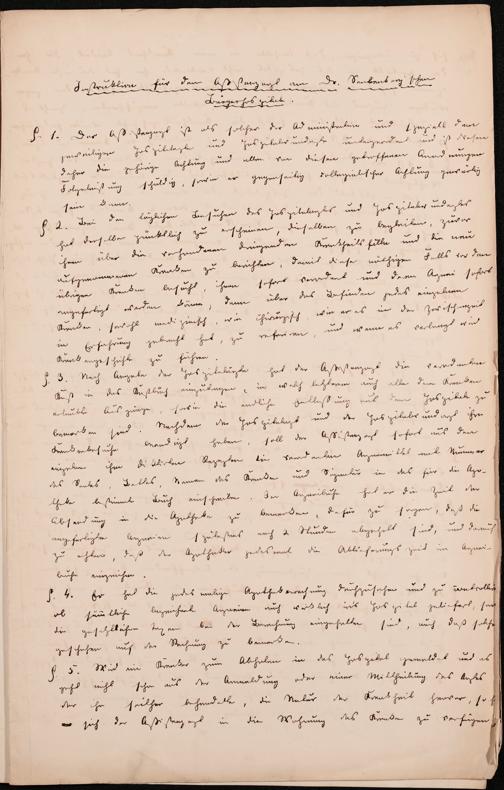 Instruktion für den Assistenzarzt am Dr. Senkenberg'schen
Bürgerhospital.
§. 1. Der Assistenzarzt ist als solcher der Administration und speziell dem
jeweiligen Hospitalarzt und Hospitalwundarzte untergeordnet und ist diesen
daher die gehörige Achtung und allen von diesen getroffenen Anordnungen
Folgeleistung schuldig, sowie er gegenseitig collegialischer Achtung gewärtig
sein kann.
§ 2. Bei den täglichen Besuchen des Hospitalarztes und Hospitalwundarztes
hat derselbe pünktlich zu erscheinen, dieselben zu begleiten, zuvor
ihnen über die vorhandenen dringenden Krankheitsfälle und die neu
aufgenommenen Kranken zu berichten, damit diese nöthigen Falls vor den
übrigen Kranken besucht, ihnen sofort verordnet und deren Arznei sofort
angefertigt werden könne, dann über das Befinden jedes einzelnen
Kranken, sowohl medizinisch, wie chirurgisch, wie er es in der Zwischenzeit
in Erfahrung gebracht hat, zu referiren, und wenn es verlangt wird
Krankengeschichte zu führen.
§. 3. Nach Angabe des Hospitalarztes hat der Assistenzarzt die verordneten
Kost in das Kostbuch einzutragen, in welch letzterem auch alle den Kranken
erlaubte Ausgänge sowie die endliche Entlassung aus dem Hospitale zu
bemerken sind. Nachdem der Hospitalarzt und der Hospitalwundarzt ihre
Krankenbesuche beendigt haben, soll der Assistenzarzt sofort aus den
einzelnen ihm diktirten Rezepten die verordneten Arzneimittel nebst Nummer
des Saales, Bettes, Namen des Kranken und Signatur in das für die Apo-
theke bestimmte Buch einschreiben. Im Arzneibuche hat er die Zeit der
Absendung in die Apotheke zu bemerken, dafür zu sorgen, daß die
angefertigten Arzneien spätestens nach 2 Stunden abgeholt sind, und darauf
zu achten, daß der Apotheker jedesmal die Ablieferungszeit im Arznei-
buche einzeichne.
§. 4. Er hat die jedesmalige Apothekerrechnung durchzusehen und zu
ob sämmtliche berechnete Arzneien auch wirklich ins Hospital geliefert,
die gesetzlichen Taxen bei der Berechnung eingehalten sind, auch daß solches
geschehen auf der Rechnung zu bemerken.
§ 5. Wird ein Kranker zum Abholen in das Hospital gemeldet und es
geht nicht schon aus der Anmeldung oder einer Mittheilung des Arztes
der ihn seither behandelte, die Natur der Krankheit hervor, so
sich der Assistenzarzt in die Wohnung des Kranken zu verfügen